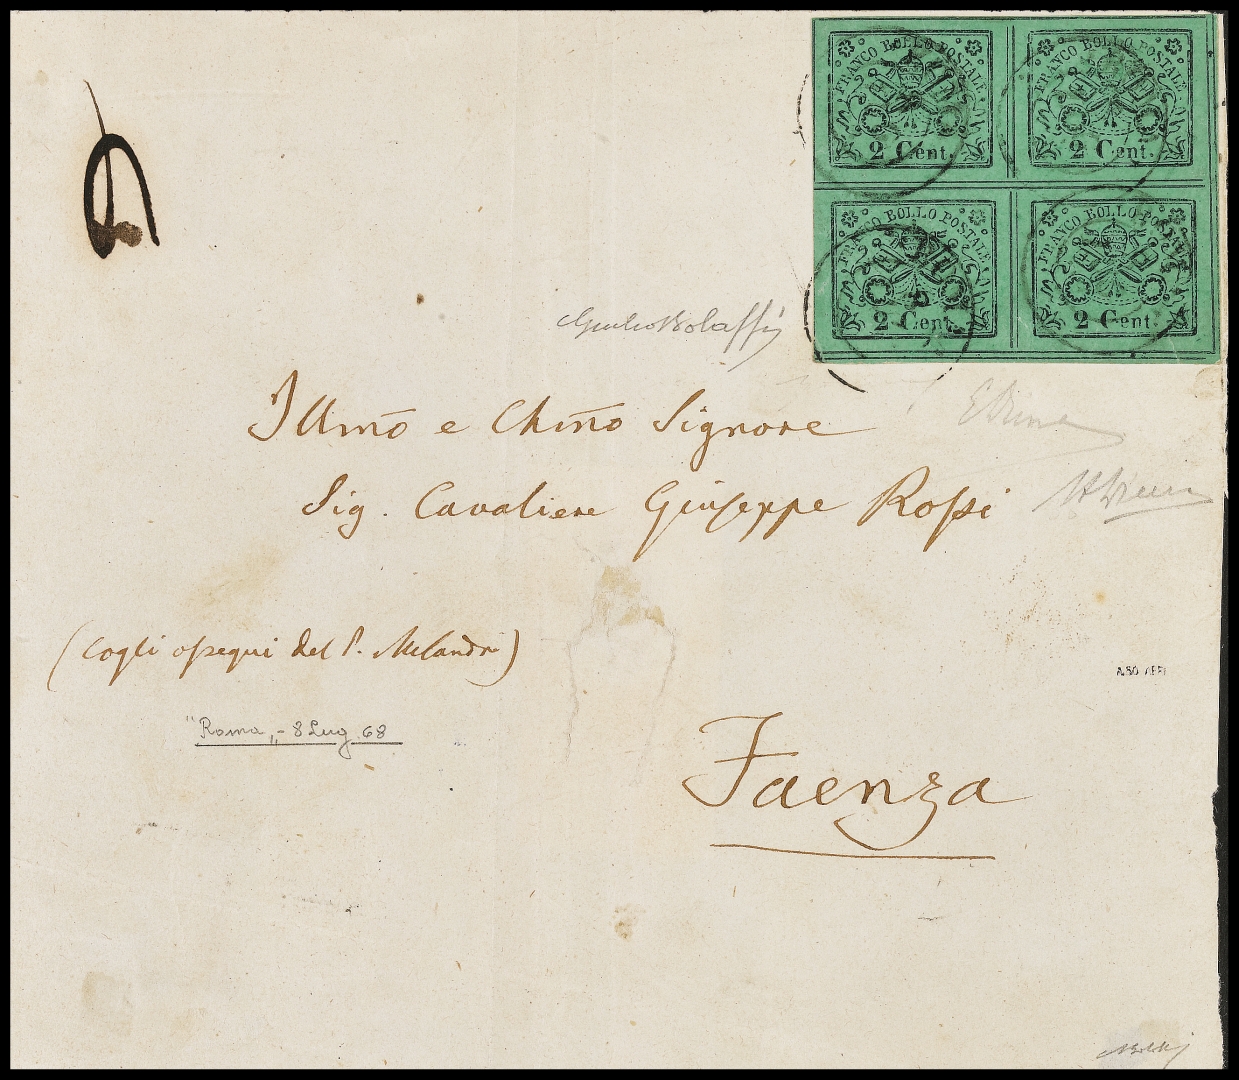 FRANCO BOLLO POSTALE
2 Cent.
FRANCO BOLLO POSTALE
2 Cent.
FRANCO BOLLO POSTALE
2 Cent.
FRANCO BOLLO POSTALE
2 Cent.
Giulio Bolaffi
Illmõ e Chmõ Signore
Sig. Cavaliere Giuseppe Rossi
(Cogli ossequi del P. Melandri)
"Roma„ - 8 Lug 68
Faenza